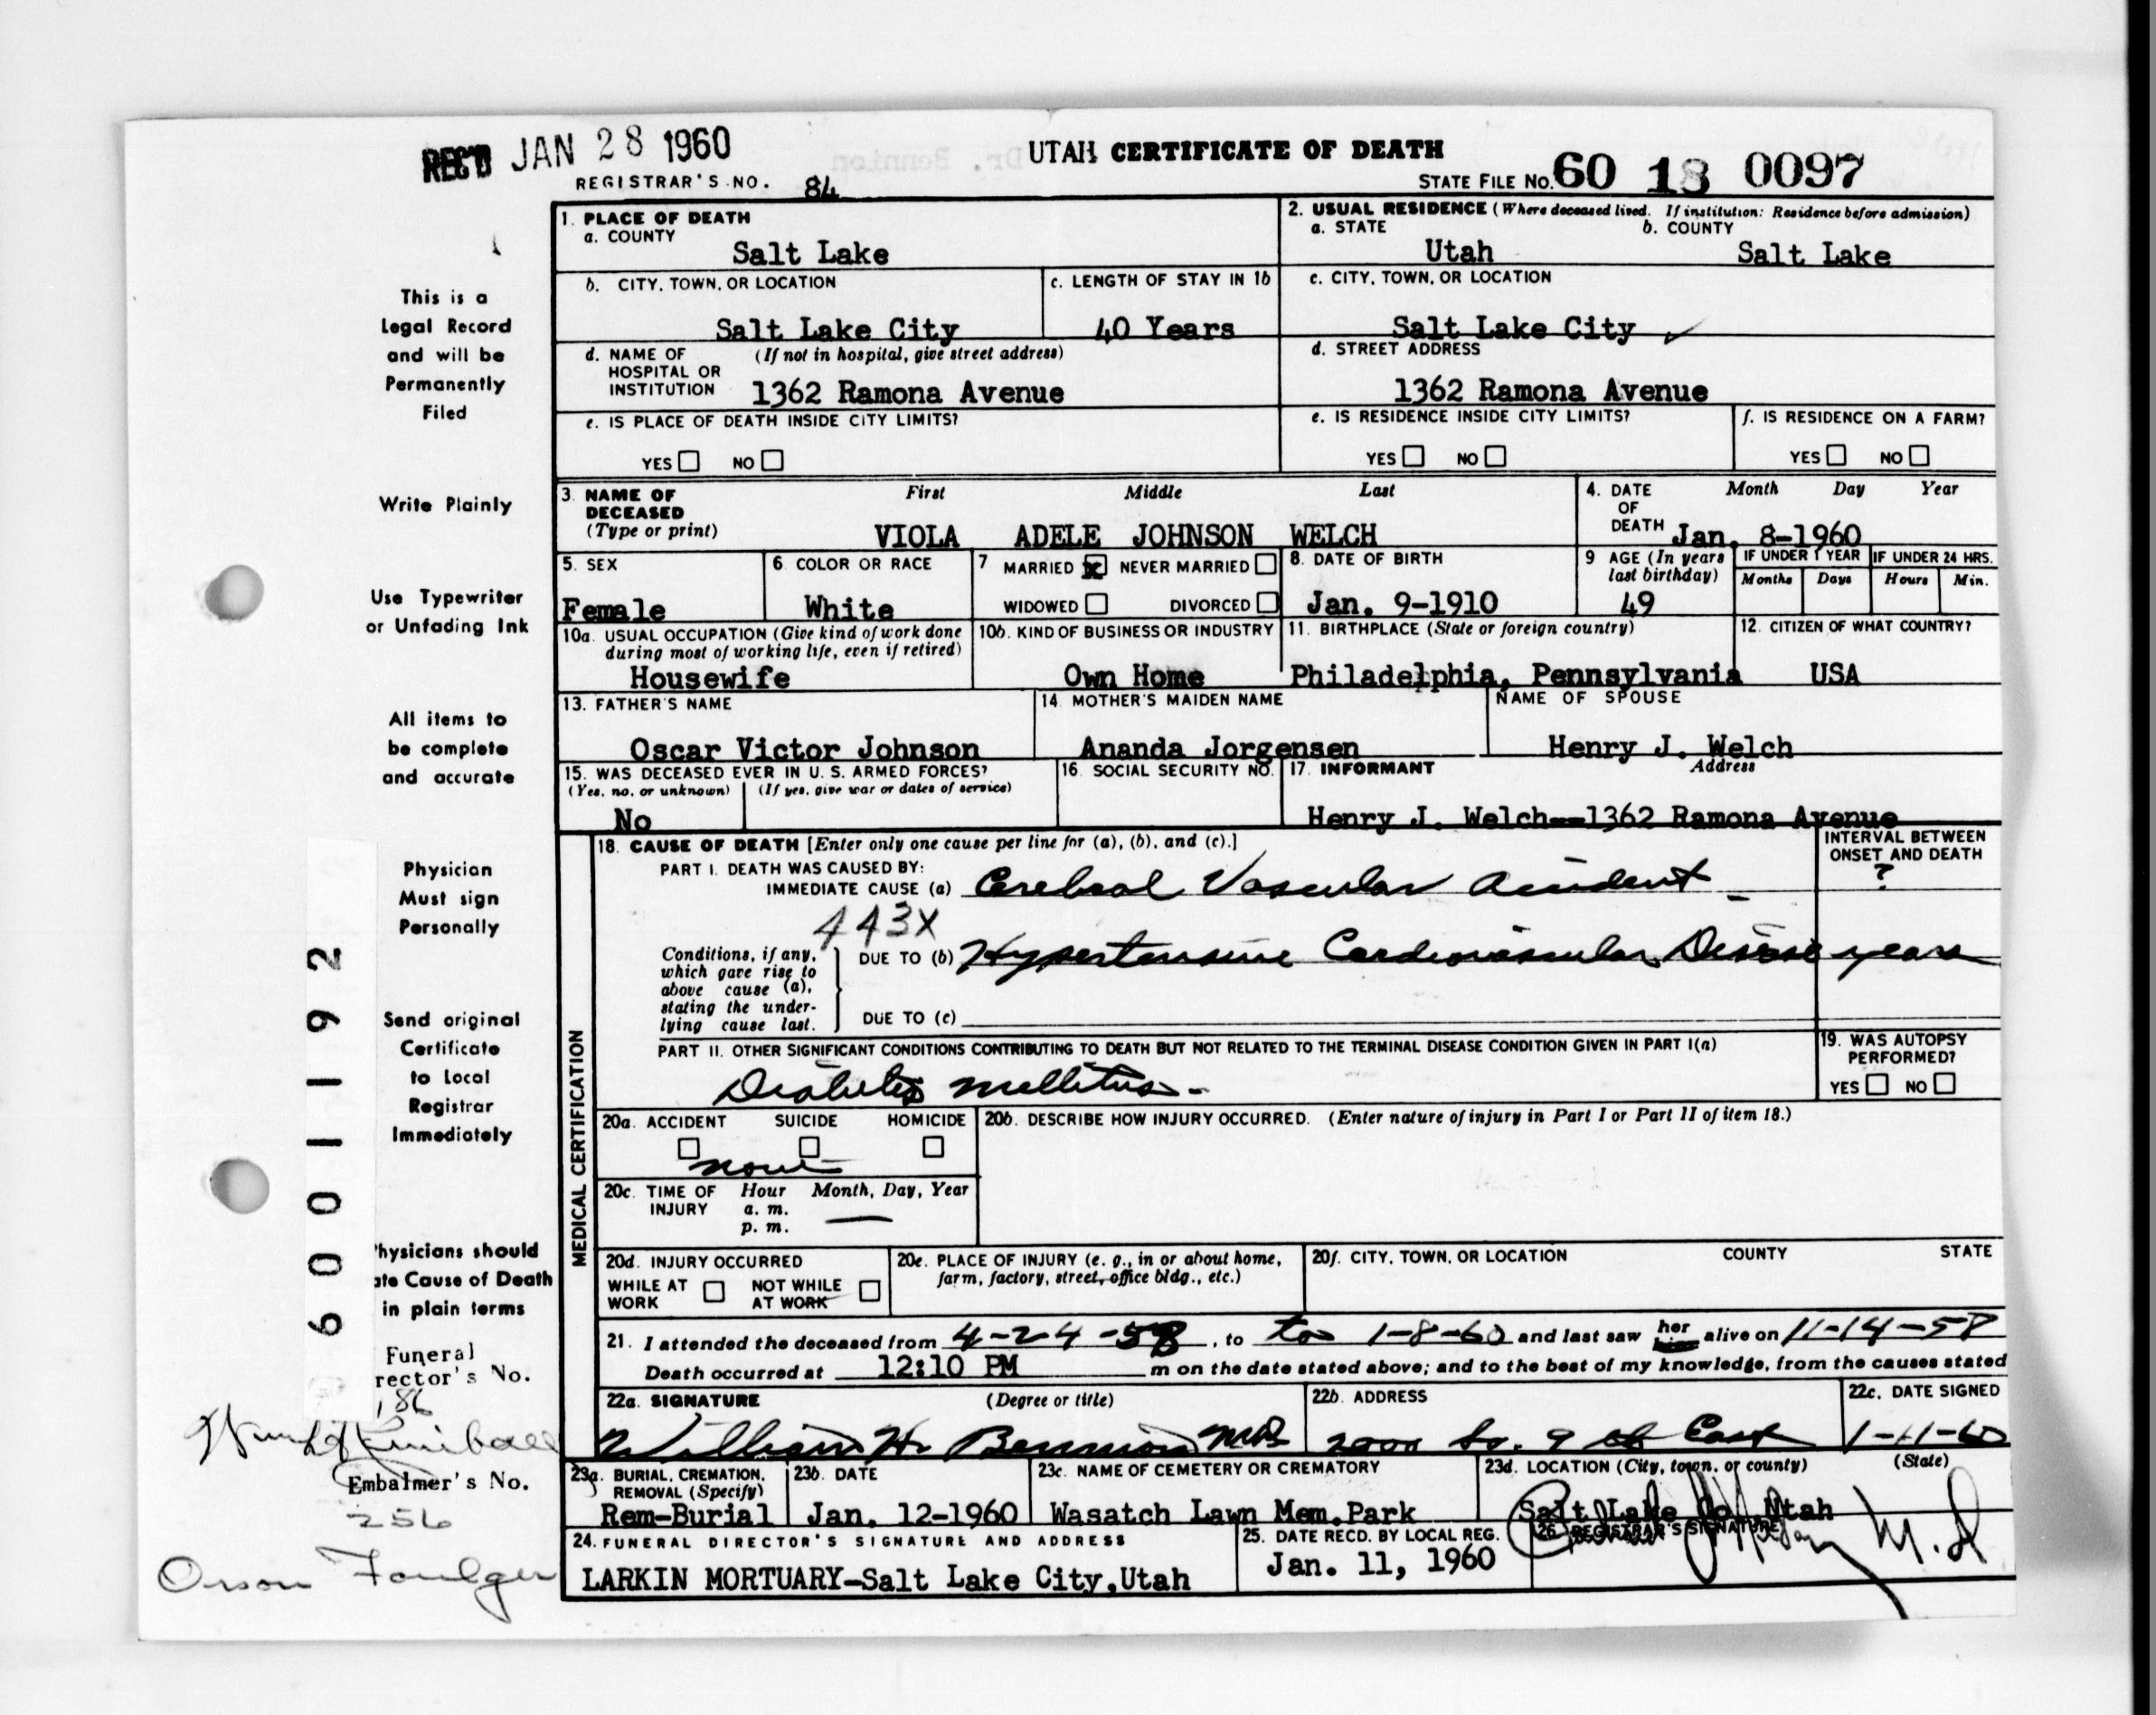 REC'D JAN 28 1960
UTAH CERTIFICATE OF DEATH
REGISTRAR'S NO. 84
STATE FILE NO. 60 18 0097
1. PLACE OF DEATH
a. COUNTY
Salt Lake
2. USUAL RESIDENCE (Where deceased lived. If institution: Residence before admission)
a. STATE b. COUNTY
Utah Salt Lake
b. CITY, TOWN, OR LOCATION
Salt Lake City
c. LENGTH OF STAY IN 1b
40 Years
c. CITY, TOWN, OR LOCATION
Salt Lake City
d. NAME OF (If not in hospital, give street address)
HOSPITAL OR
INSTITUTION 1362 Ramona Avenue
d. STREET ADDRESS
1362 Ramona Avenue
e. IS PLACE OF DEATH INSIDE CITY LIMITS?
YES NO
e. IS RESIDENCE INSIDE CITY LIMITS?
YES NO
f. IS RESIDENCE ON A FARM?
YES NO
3. NAME OF First Middle Last
DECEASED
(Type or print) VIOLA ADELE JOHNSON WELCH
4. DATE Month Day Year
OF
DEATH Jan. 8-1960
5. SEX
Female
6. COLOR OR RACE
White
7 MARRIED x NEVER MARRIED
WIDOWED DIVORCED
8. DATE OF BIRTH
Jan. 9-1910
9 AGE (In years
last birthday)
49
IF UNDER 1 YEAR
Months Days
IF UNDER 24 HRS.
Hours Min.
10a. USUAL OCCUPATION (Give kind of work done
during most of working life, even if retired)
Housewife
10b. KIND OF BUSINESS OR INDUSTRY
Own Home
11. BIRTHPLACE (State or foreign country)
Philadelphia, Pennsylvania
12. CITIZEN OF WHAT COUNTRY?
USA
13. FATHER'S NAME
Oscar Victor Johnson
14. MOTHER'S MAIDEN NAME
Ananda Jorgensen
NAME OF SPOUSE
Henry J. Welch
15. WAS DECEASED EVER IN U. S. ARMED FORCES?
(Yes, no, or unknown) (If yes, give war or dates of service)
No
16. SOCIAL SECURITY NO.
17. INFORMANT Address
Henry J. Welch--1362 Ramona Avenue
MEDICAL CERTIFICATION
18. CAUSE OF DEATH [Enter only one cause per line for (a), (b), and (c).]
INTERVAL BETWEEN
ONSET AND DEATH
PART I. DEATH WAS CAUSED BY:
IMMEDIATE CAUSE (a) Cerebral Vascular Accident - ?
443X
Conditions, if any,
which gave rise to
above cause (a),
stating the under-
lying cause last.
DUE TO (b) Hypertensive Cardiovascular Disease years
DUE TO (c)
PART II. OTHER SIGNIFICANT CONDITIONS CONTRIBUTING TO DEATH BUT NOT RELATED TO THE TERMINAL DISEASE CONDITION GIVEN IN PART I(a)
Diabetes mellitus -
19. WAS AUTOPSY
PERFORMED?
YES NO
20a. ACCIDENT SUICIDE HOMICIDE
none
20b. DESCRIBE HOW INJURY OCCURRED. (Enter nature of injury in Part I or Part II of item 18.)
20c. TIME OF Hour Month, Day, Year
INJURY a. m.
p. m. —
20d. INJURY OCCURRED
WHILE AT NOT WHILE
WORK AT WORK
20e. PLACE OF INJURY (e. g., in or about home,
farm, factory, street, office bldg., etc.)
20f. CITY, TOWN, OR LOCATION COUNTY STATE
21. I attended the deceased from 4-24-58, to to 1-8-60 and last saw her him alive on 11-14-58
Death occurred at 12:10 PM m on the date stated above; and to the best of my knowledge, from the causes stated
22a. SIGNATURE (Degree or title)
William H. Bennion MD
22b. ADDRESS
2000 So. 9 th East
22c. DATE SIGNED
1-11-60
23a. BURIAL, CREMATION,
REMOVAL (Specify)
Rem-Burial
23b. DATE
Jan. 12-1960
23c. NAME OF CEMETERY OR CREMATORY
Wasatch Lawn Mem.Park
23d. LOCATION (City, town, or county) (State)
Salt Lake Co. Utah
24. FUNERAL DIRECTOR'S SIGNATURE AND ADDRESS
LARKIN MORTUARY-Salt Lake City, Utah
25. DATE RECD. BY LOCAL REG.
Jan. 11, 1960
26 REGISTRAR'S SIGNATURE
M.D
This is a
Legal Record
and will be
Permanently
Filed
Write Plainly
Use Typewriter
or Unfading Ink
All items to
be complete
and accurate
Physician
Must sign
Personally
Send original
Certificate
to Local
Registrar
Immediately
hysicians should
ate Cause of Death
in plain terms
Funeral
rector's No.
186
Kimball
Embalmer's No.
256
Orson Foulger
6001192